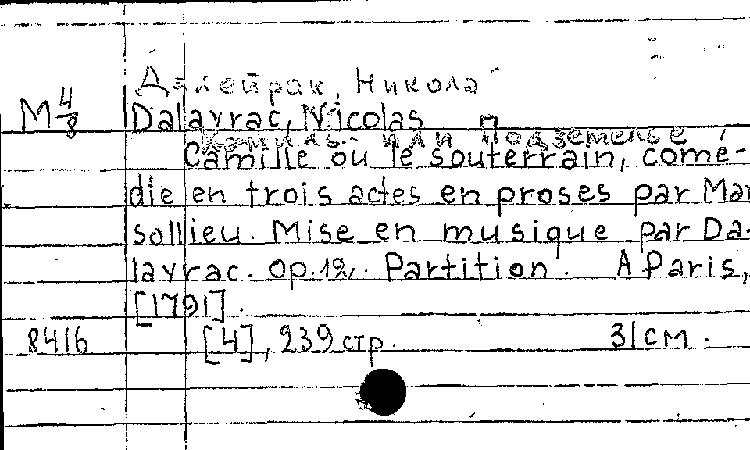 Далейрак, Никола
М 4/8 Dalayrac, Nicolas
Камилль или Подземелье
Camille ou le souterrain, comé-
die en trois actes en proses par Mar
sollieu. Mise en musique par Da-
layrac. Op.12. Partition. A Paris,
[1791].
8416 [4], 239 стр. 31 см.